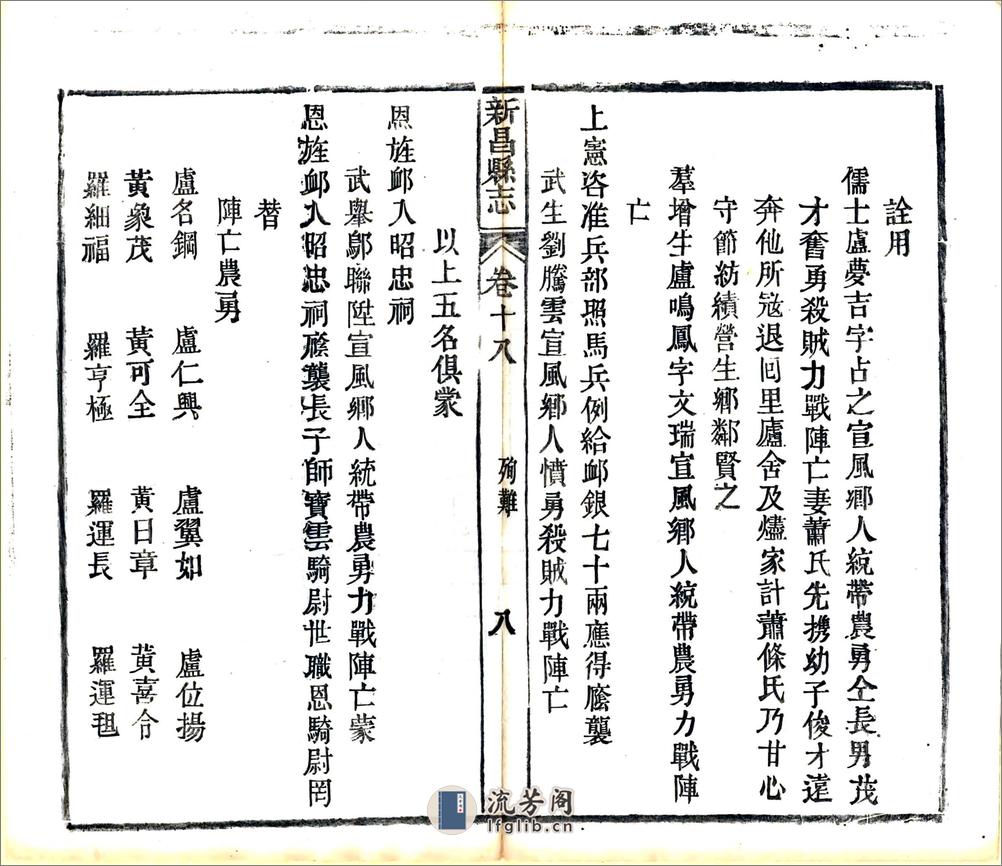 詮用
儒士盧夢吉字占之宣風鄉人統帶農勇仝長男茂
才奮勇殺賊力戰陣亡妻蕭氏先携幼子俊才遠
奔他所㓂退囘里廬舍及燼家計蕭條氏乃甘心
守節紡績營生鄉鄰賢之
羣增生盧鳴鳳字文瑞宣風鄉人統帶農勇力戰陣
亡
上憲咨准兵部照馬兵例給䘏銀七十兩應得廕襲
武生劉騰雲宣風鄉人憤勇殺賊力戰陣亡
新昌縣志 卷十八 殉難 八
以上五名俱蒙
恩旌䘏入昭忠祠
武舉鄔聯陞宣風鄉人統帶農勇力戰陣亡蒙
恩旌䘏入昭忠祠廕襲長子師寶雲騎尉世職恩騎尉罔
替
陣亡農勇
盧名鋼 盧仁興 盧翼如 盧位揚
黃象茂 黃可全 黃日章 黃喜令
羅細福 羅亨極 羅運長 羅運
流芳阁
lfglib.cn